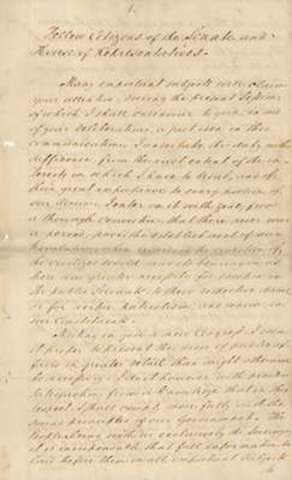 1.
Fellow Citizens of the Senate and
House of Representatives.
Many important subjects will claim
your attention during the present Session,
of which I shall endeavour to give, in aid
of your deliberations, a just idea in this
communication. I undertake this duty with
diffidence, from the vast extent of the in-
terests on which I have to treat, and of
their great importance to every portion of
our Union. I enter on it with zeal, from
a thorough conviction that there never was
a period, since the establishment of our
Revolution when regarding the condition of
the civilized world and its bearing on us
there was greater necessity for devotion in
the public Servants to their respective duties,
or for virtue, patriotism and union in
our Constituents.
Meeting in you a new Congress I deem
it proper to present this view of public af-
fairs in greater detail than might otherwise
be necessary. I do it however with peculiar
satisfaction, from a knowledge that in this
respect I shall comply more fully with the
sound principles of our Government. The
people being with us exclusively the Sovereign,
it is indispensable that full information be
laid before them on all important subjects